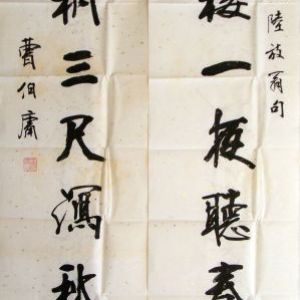 陸放翁句
樓一夜聽春
桐三尺瀉秋
曹伯庸